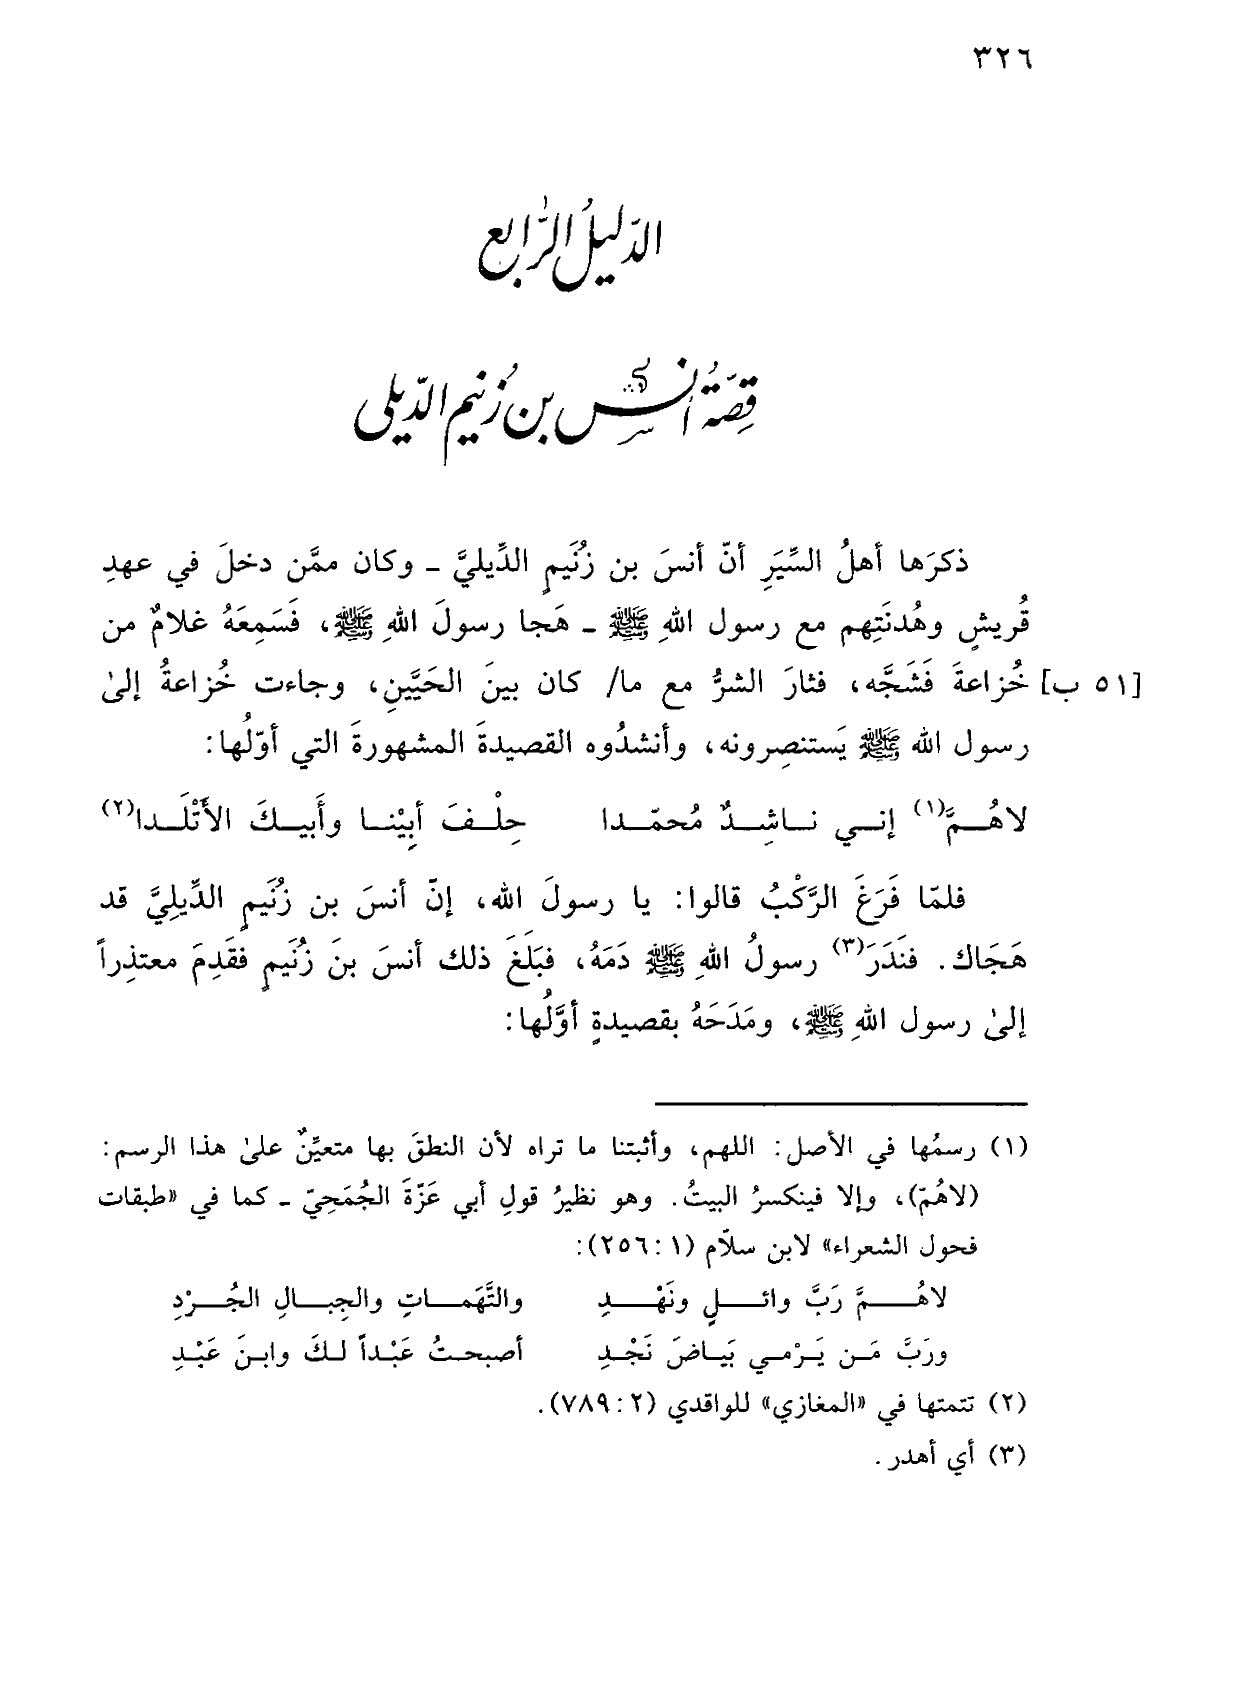 ٣٢٦
الدّليلُ الرّابع
قِصّةُ أنس بن زُنيم الدّيلي
ذكرَها أهلُ السِّيَرِ أنّ أنسَ بن زُنَيمٍ الدِّيليَّ ـ وكان ممَّن دخلَ في عهدِ
قُريشٍ وهُدنَتِهم مع رسول اللهِ ﷺ ـ هَجا رسولَ اللهِ ﷺ، فَسَمِعَهُ غلامٌ من
[٥١ ب] خُزاعةَ فَشَجَّه، فثارَ الشرُّ مع ما/ كان بينَ الحَيَّينِ، وجاءت خُزاعةُ إلىٰ
رسول الله ﷺ يَستنصِرونه، وأنشدُوه القصيدةَ المشهورةَ التي أوّلُها:
لاهُــمَّ(١) إنــي نــاشِــدٌ مُحمّــدا حِلْــفَ أبِيْنــا وأَبيــكَ الأَتْلَــدا(٢)
فلمّا فَرَغَ الرَّكْبُ قالوا: يا رسولَ الله، إنّ أنسَ بن زُنَيمٍ الدِّيلِيَّ قد
هَجَاك. فنَدَرَ(٣) رسولُ اللهِ ﷺ دَمَهُ، فبَلَغَ ذلك أنسَ بنَ زُنَيمٍ فقَدِمَ معتذِراً
إلىٰ رسول اللهِ ﷺ، ومَدَحَهُ بقصيدةٍ أوَّلُها:
(١) رسمُها في الأصل: اللهم، وأثبتنا ما تراه لأن النطقَ بها متعيِّنٌ علىٰ هذا الرسم:
(لاهُمّ)، وإلا فينكسرُ البيتُ. وهو نظيرُ قولِ أبي عَزّةَ الجُمَحِيّ ـ كما في «طبقات
فحول الشعراء» لابن سلّام (١: ٢٥٦):
لاهُــــمَّ رَبَّ وائــــلٍ ونَهْــــدِ والتَّهَمــاتِ والجِبــالِ الجُــرْدِ
ورَبَّ مَــن يَــرْمــي بَيــاضَ نَجْــدِ أصبحــتُ عَبْــداً لــكَ وابــنَ عَبْــدِ
(٢) تتمتها في «المغازي» للواقدي (٢: ٧٨٩).
(٣) أي أهدر.